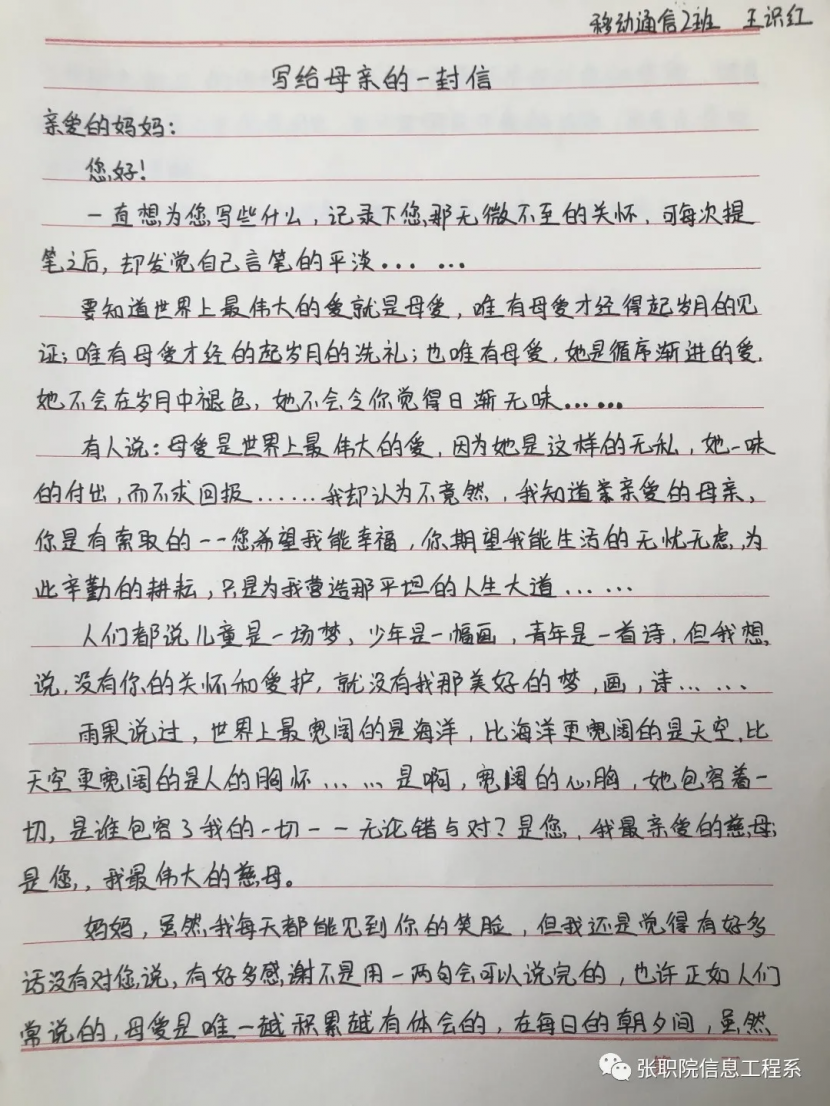 移动通信2班 王识红
写给母亲的一封信
亲爱的妈妈：
您好！
一直想为您写些什么，记录下您那无微不至的关怀，可每次提
笔之后，却发觉自己言笔的平淡... ...
要知道世界上最伟大的爱就是母爱，唯有母爱才经得起岁月的见
证；唯有母爱才经的起岁月的洗礼；也唯有母爱，她是循序渐进的爱.
她不会在岁月中褪色，她不会令你觉得日渐无味......
有人说：母爱是世界上最伟大的爱，因为她是这样的无私，她一味
的付出，而不求回报......我却认为不竟然，我知道亲爱的母亲，
你是有索取的--您希望我能幸福，你期望我能生活的无忧无虑，为
此辛勤的耕耘，只是为我营造那平坦的人生大道......
人们都说儿童是一场梦，少年是一幅画，青年是一首诗，但我想
说，没有你的关怀和爱护，就没有我那美好的梦，画，诗......
雨果说过，世界上最宽阔的是海洋，比海洋更宽阔的是天空，比
天空更宽阔的是人的胸怀......是啊，宽阔的心胸，她包容着一
切，是谁包容了我的一切--无论错与对？是您，我最亲爱的慈母；
是您，我最伟大的慈母。
妈妈，虽然我每天都能见到你的笑脸，但我还是觉得有好多
话没有对您说，有好多感谢不是用一两句会可以说完的，也许正如人们
常说的，母爱是唯一越积累越有体会的，在每日的朝夕间，虽然
张职院信息工程系